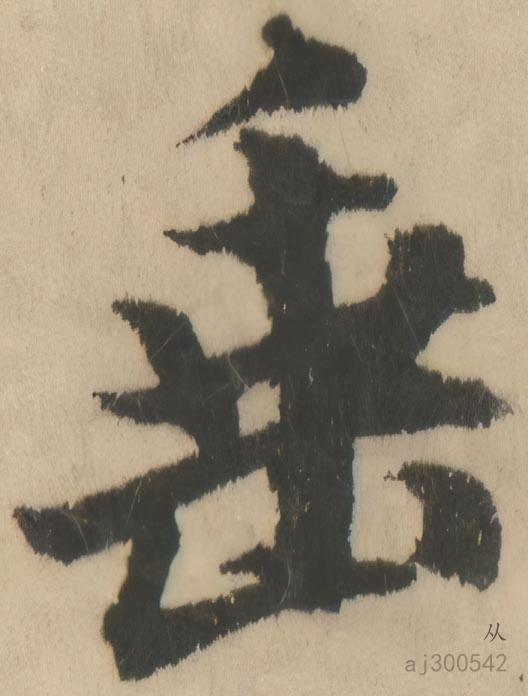 垂
从
aj300542